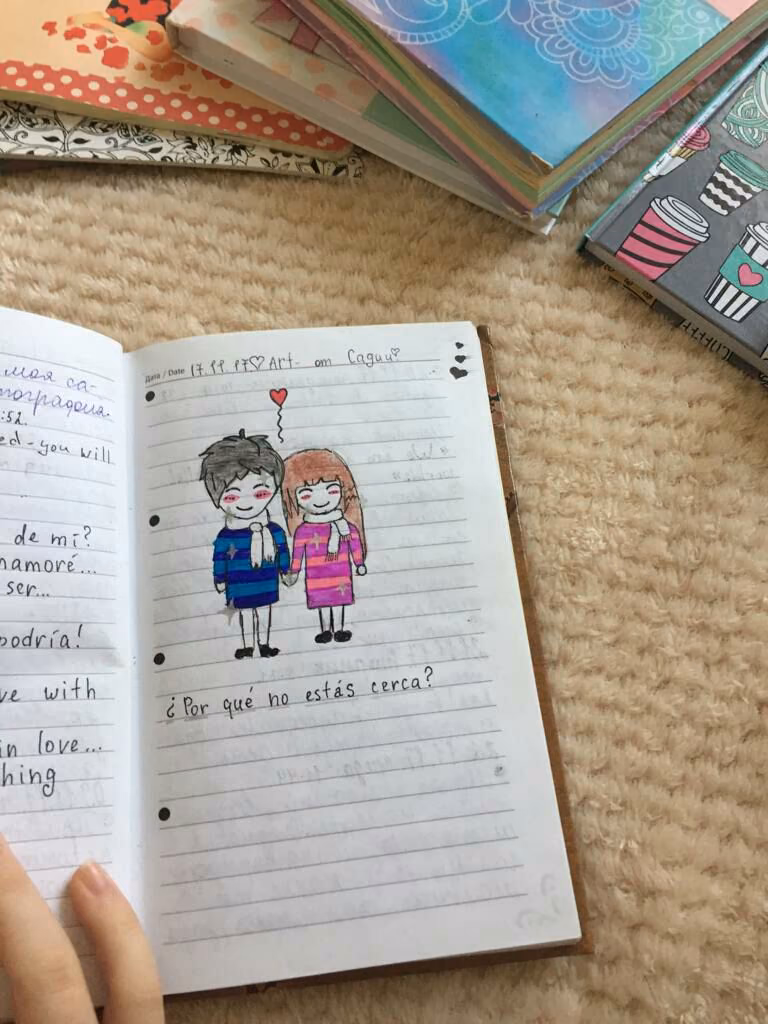 моя са-
тография
:52.
ed - you will
de mí?
namoré...
ser...
podría!
ve with
in love...
hing
Дата / Date 17.11.17♡ Art - от Садии♡
¿Por qué no estás cerca?